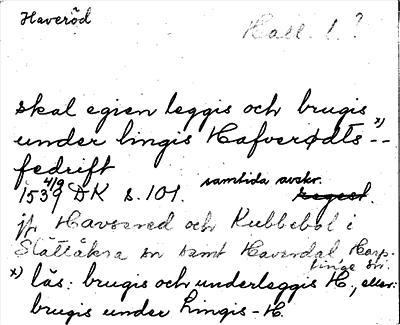 Haveröd
Hall. l.?
skal egien leggis och brugis
under lingis Hafverødts x)--
fedrift
1539 4/9 DK s. 101. samtida avskr. regest.
jfr Havsered och Kubbebol i
Slättåkra sn samt Haverdal Harp-
linge sn.
x) läs: brugis och underleggis H., eller:
brugis under Lingis-H.